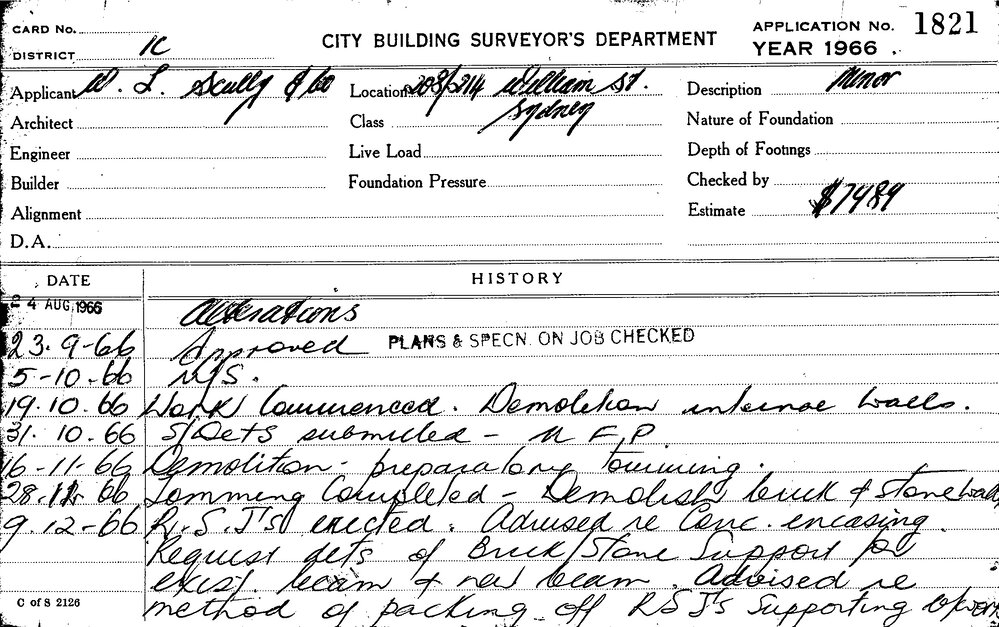 CARD No.
DISTRICT 1C
CITY BUILDING SURVEYOR'S DEPARTMENT
APPLICATION No. 1821
YEAR 1966
Applicant W. L. Scully & Co
Location 208/214 William St.
Sydney
Description Minor
Architect
Class
Nature of Foundation
Engineer
Live Load
Depth of Footings
Builder
Foundation Pressure
Checked by
Alignment
Estimate $7489
D.A.
DATE HISTORY
4 AUG 1966 Alterations
23.9-66 Approved PLANS & SPECN. ON JOB CHECKED
5-10-66 N/S.
19.10.66 Work Commenced. Demolition internal walls.
31.10.66 S/Dets submitted - N F P
16-11-66 Demoliton - preparatory tomming.
28.11.66 Tomming Completed - Demolish brick & stone walls
9.12-66 R.S.J's erected. Advised re Conc. encasing.
Request dets of Brick/Stone Support for
exist. beam & new beam. Advised re
method of packing off RSJ's Supporting
C of S 2126